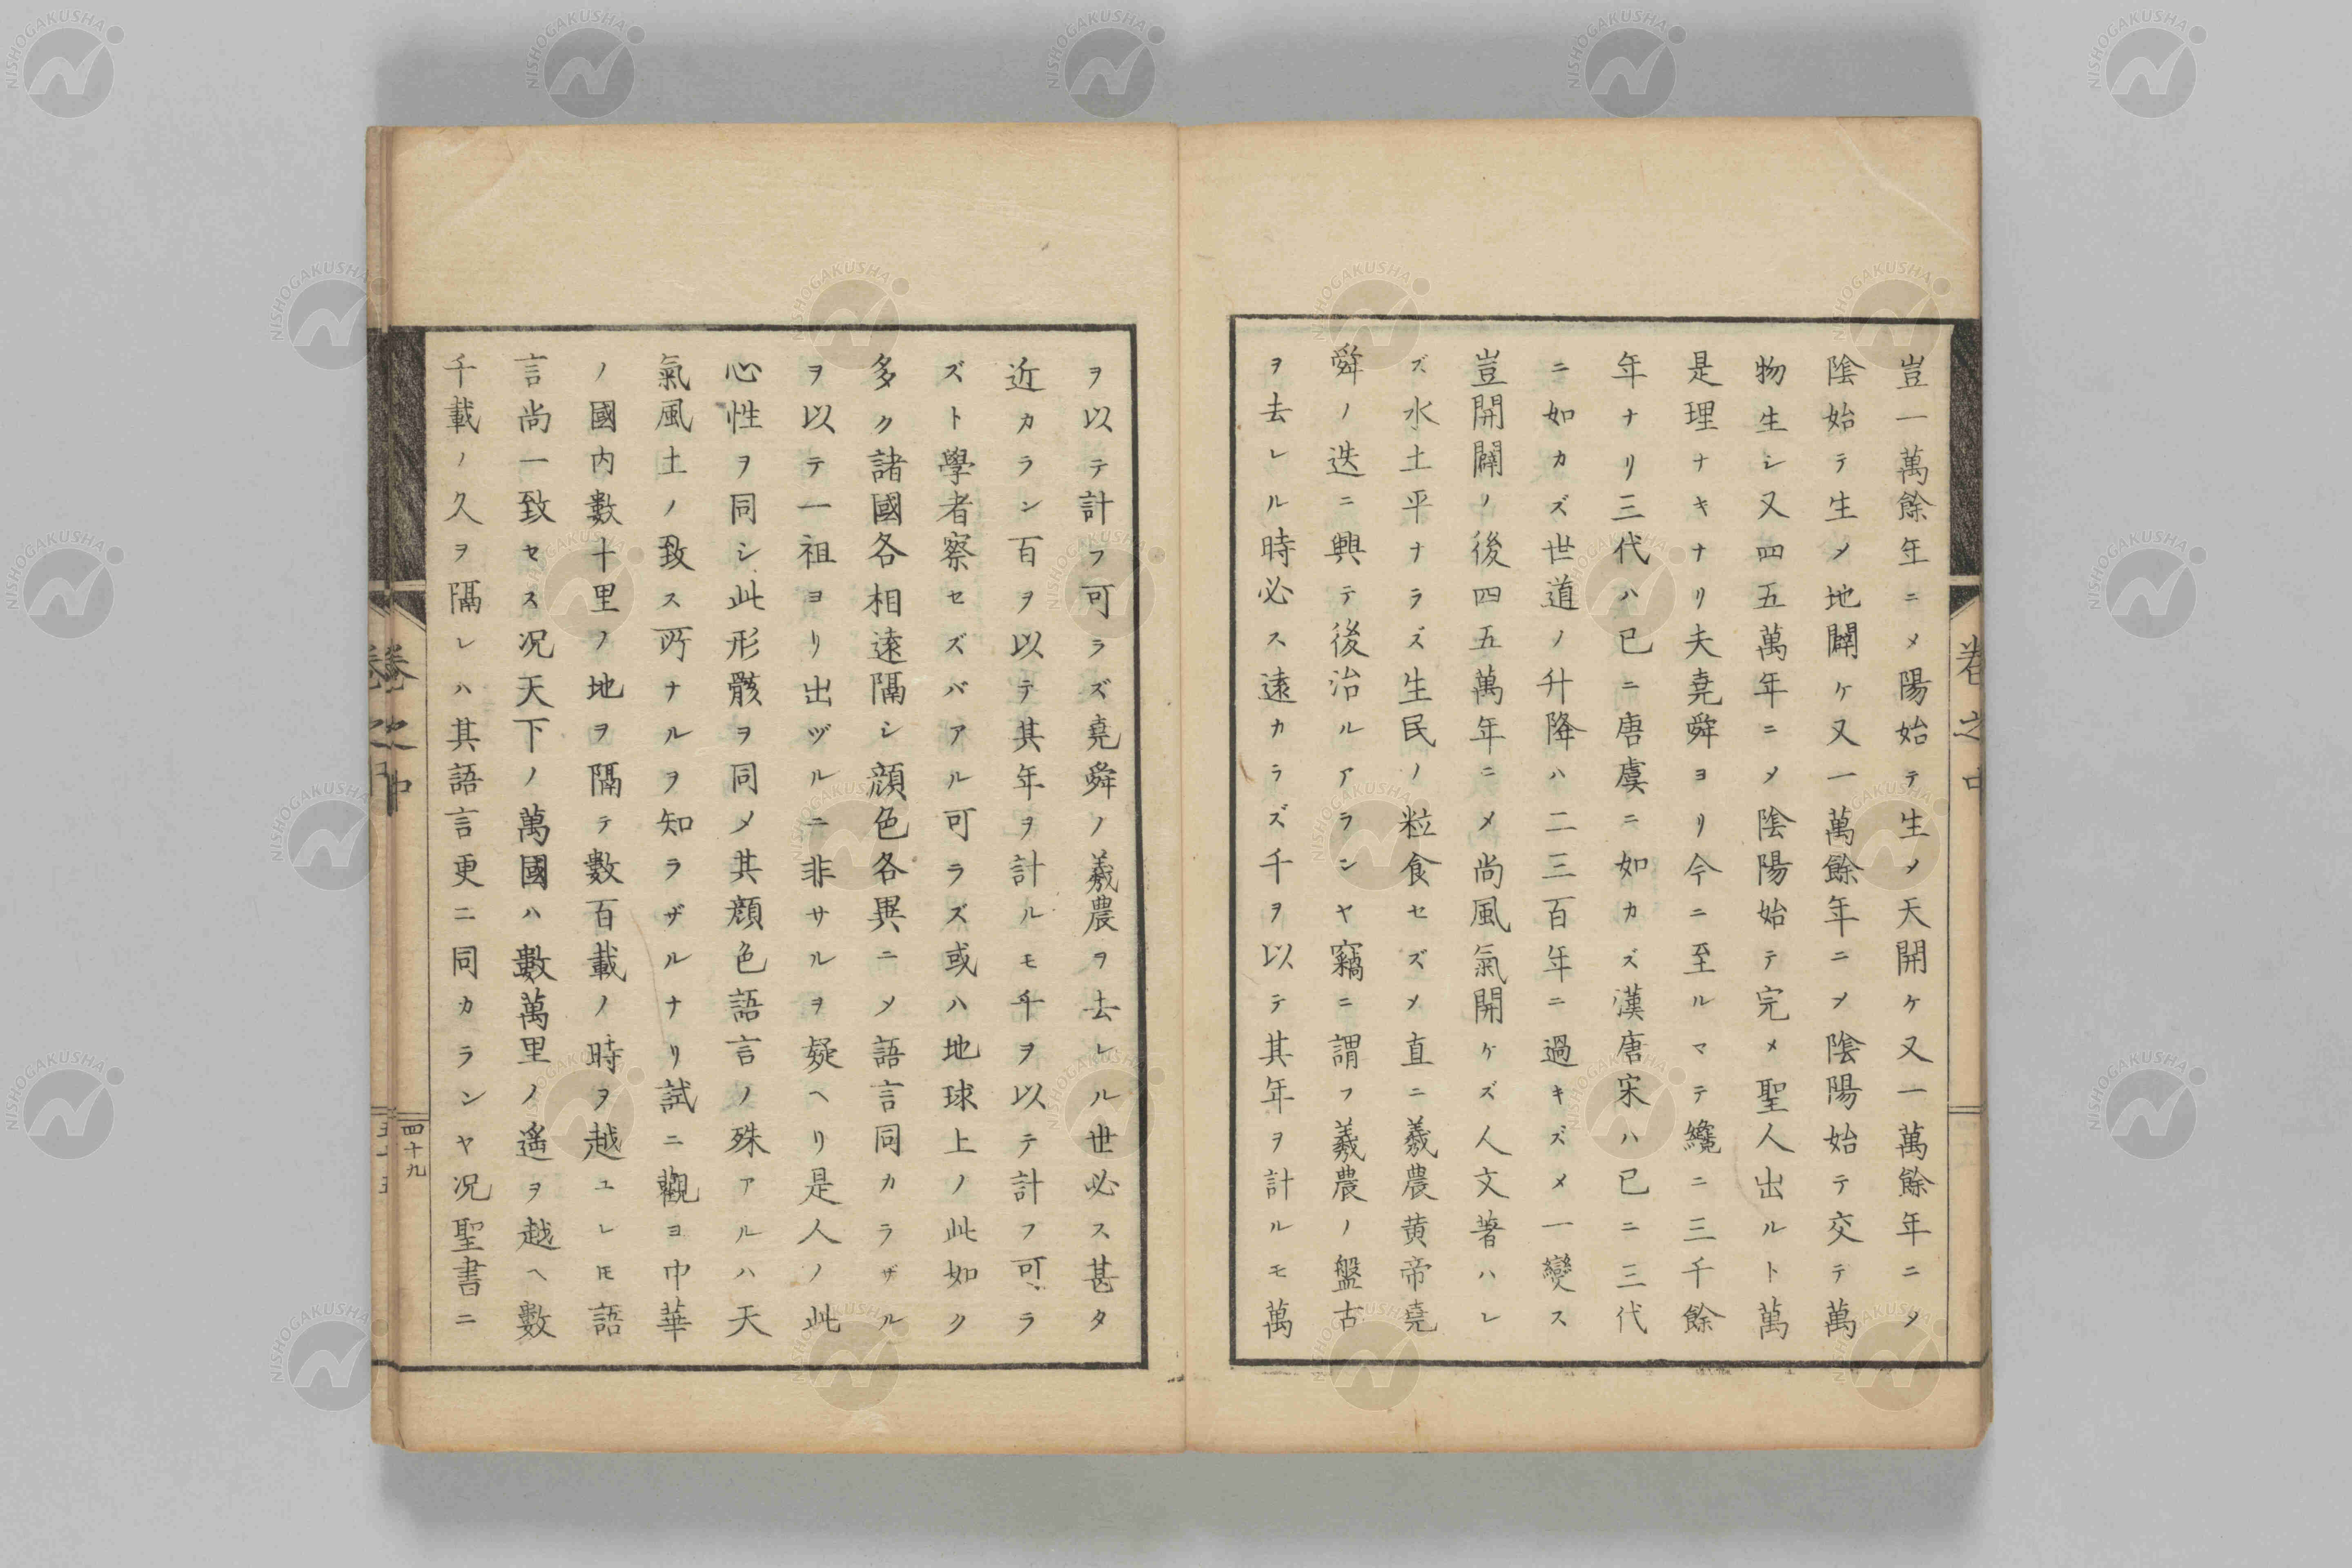 豈一萬餘年ニメ陽始テ生メ天開ケ又一萬餘年ニメ
陰始テ生メ地闢ケ又一萬餘年ニメ陰陽始テ交テ萬
物生シ又四五萬年ニメ陰陽始テ完メ聖人出ルト萬
是理ナキナリ夫堯舜ヨリ今ニ至ルマテ纔ニ三千餘
年ナリ三代ハ已ニ唐虞ニ如カズ漢唐宋ハ已ニ三代
ニ如カズ世道ノ升降ハ二三百年ニ過キズメ一變ス
豈開闢ノ後四五萬年ニメ尚風氣開ケズ人文著ハレ
ズ水土平ナラズ生民ノ粒食セズメ直ニ羲農黄帝堯
舜ノ迭ニ興テ後治ルアランヤ竊ニ謂フ羲農ノ盤古
ヲ去レル時必ス遠カラズ千ヲ以テ其年ヲ計ルモ萬
ヲ以テ計フ可ラズ堯舜ノ羲農ヲ去レル世必ス甚タ
近カラン百ヲ以テ其年ヲ計ルモ千ヲ以テ計フ可ラ
ズト學者察セズバアル可ラズ或ハ地球上ノ此如ク
多ク諸國各相遠隔シ顔色各異ニメ語言同カラザル
ヲ以テ一祖ヨリ出ヅルニ非サルヲ疑ヘリ是人ノ此
心性ヲ同シ此形骸ヲ同メ其顔色語言ノ殊アルハ天
氣風土ノ致ス所ナルヲ知ラザルナリ試ニ觀ヨ中華
ノ國内數十里ノ地ヲ隔テ數百載ノ時ヲ越ユレ𪜈語
言尚一致セス况天下ノ萬國ハ數萬里ノ遙ヲ越ヘ數
千載ノ久ヲ隔レハ其語言更ニ同カランヤ况聖書ニ
卷之中
四十九
NISHOGAKUSHA